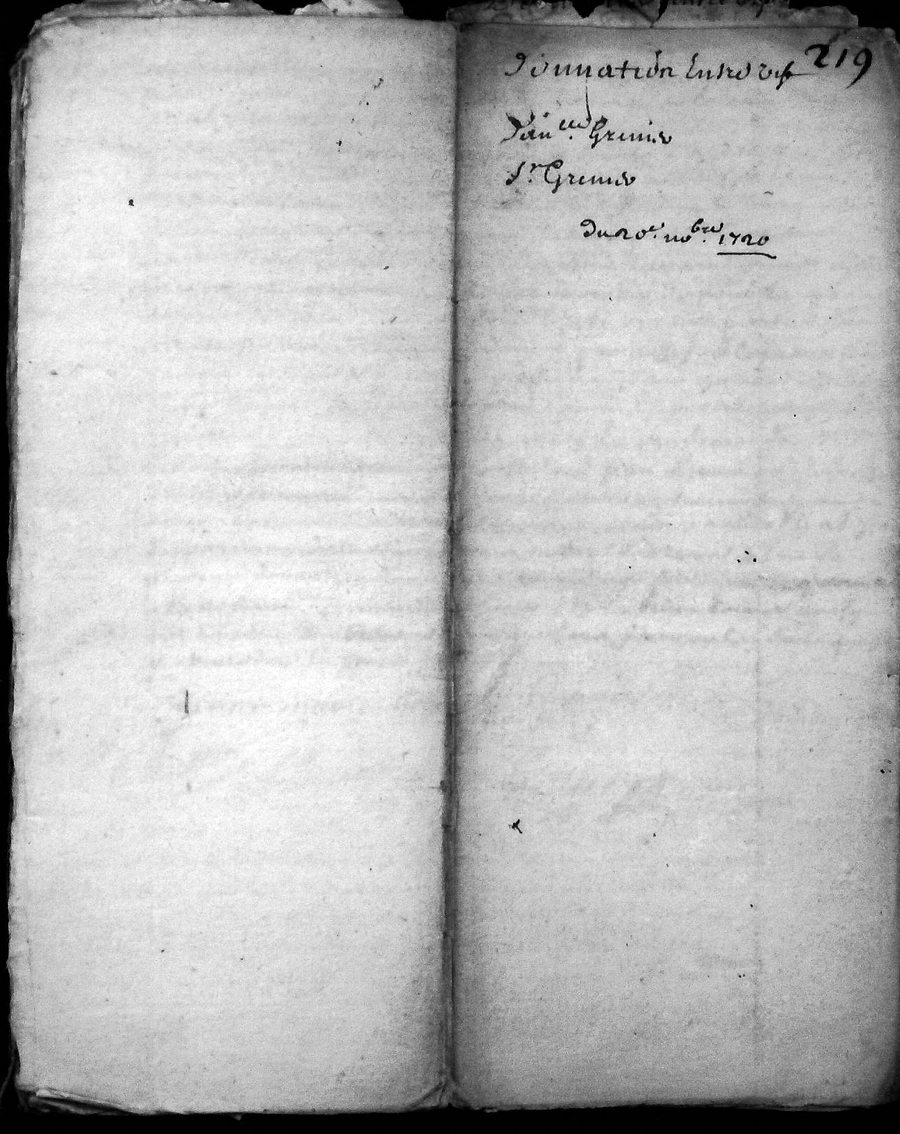 219
Donnation Entre vifs
Grenier
Sr Grenier
Du 20e. nobre. 1720